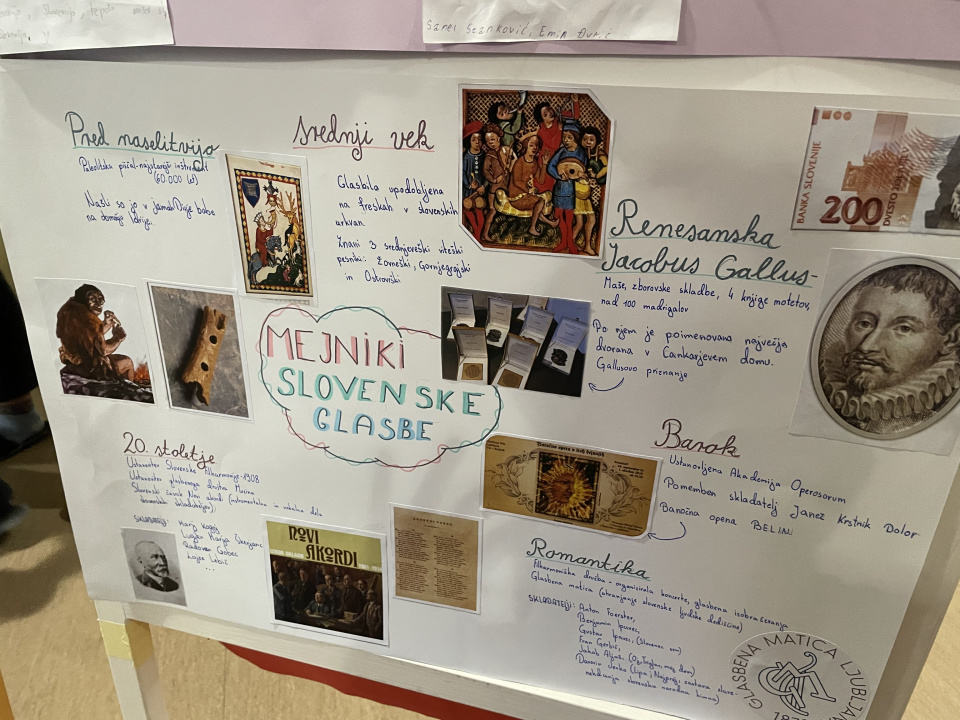 Sanel Stanković, Emin
Pred naselitvijo
Paleolitska piščal-najstarejši inštrument
(60.000 let)
Našli so jo v jamah Divje babe
na domeju Idrije.
Srednji vek
Glasbila upodobljena
na freskah v slovenskih
Znani 3 srednjeveški viteški
pesniki: Žovneški, Gornjegrajski
in Ostrovrški
Renesanska
Jacobus Gallus-
Maše, zborovske skladbe, 4 knjige motetov,
nad 100 madrigalov
Po njem je poimenovana največja
dvorana v Cankarjevem domu.
Gallusovo priznanje
BANKA SLOVENIJE
200
DVESTO
MEJNIKI
SLOVENSKE
GLASBE
Barok
Ustanovljena Akademija Operosorum
Pomemben skladatelj Janez Krstnik Dolar
Baročna opera BELIN
20. stoletje
Ustanovitev Slovenske filharmonije-1908
Ustanovitev glasbenega društva Matica
Slovenski zvezek Novi akordi (instrumentalna in vokalna dela
slovenskih skladateljev)
SKLADATELJI: Marij Kogoj
Lucijan Marija Škerjanc
Radovan Gobec
Lojze Lebič
...
NOVI
AKORDI
Romantika
Filharmonična družba - organizirala koncerte, glasbena izobraževanja
Glasbena matica (ohranjanje slovenske ljudske dediščine)
SKLADATELJI: Anton Foerster,
Benjamin Ipavec,
Gustav Ipavec, (Slovenec sem)
Fran Gerbič,
Jakob Aljaž, (Oj, Triglav, moj dom)
Davorin Jenko (Lipa; Naprej, zastava slave-
nekdanja slovenska narodna himna)
GLASBENA MATICA LJUBLJANA